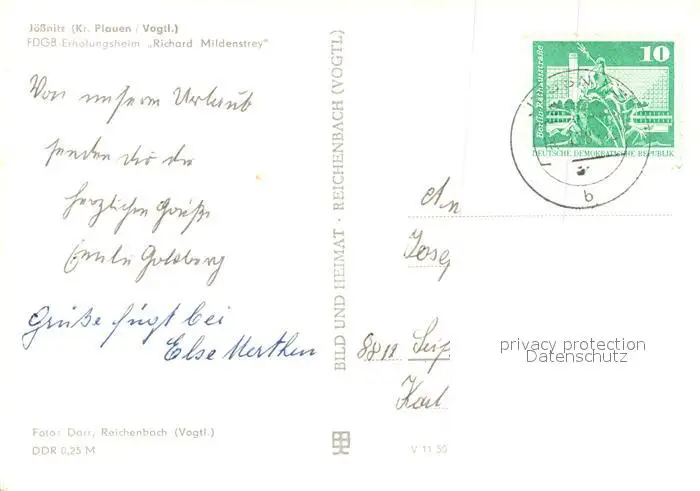 Jößnitz (Kr. Plauen / Vogtl.)
FDGB Erholungsheim „Richard Mildenstrey"
Von unserm Urlaub
senden dir die
herzlichen Grüße
Emilie Goldberg
Grüße fügt bei
Else Merthen
Foto: Darr, Reichenbach (Vogtl.)
DDR 0,25 M
BILD UND HEIMAT · REICHENBACH (VOGTL)
V 11 50
10
Berlin-Rathausstraße
DEUTSCHE DEMOKRATISCHE REPUBLIK
b
An
Josef
8811 Seif
Karl
privacy protection
Datenschutz